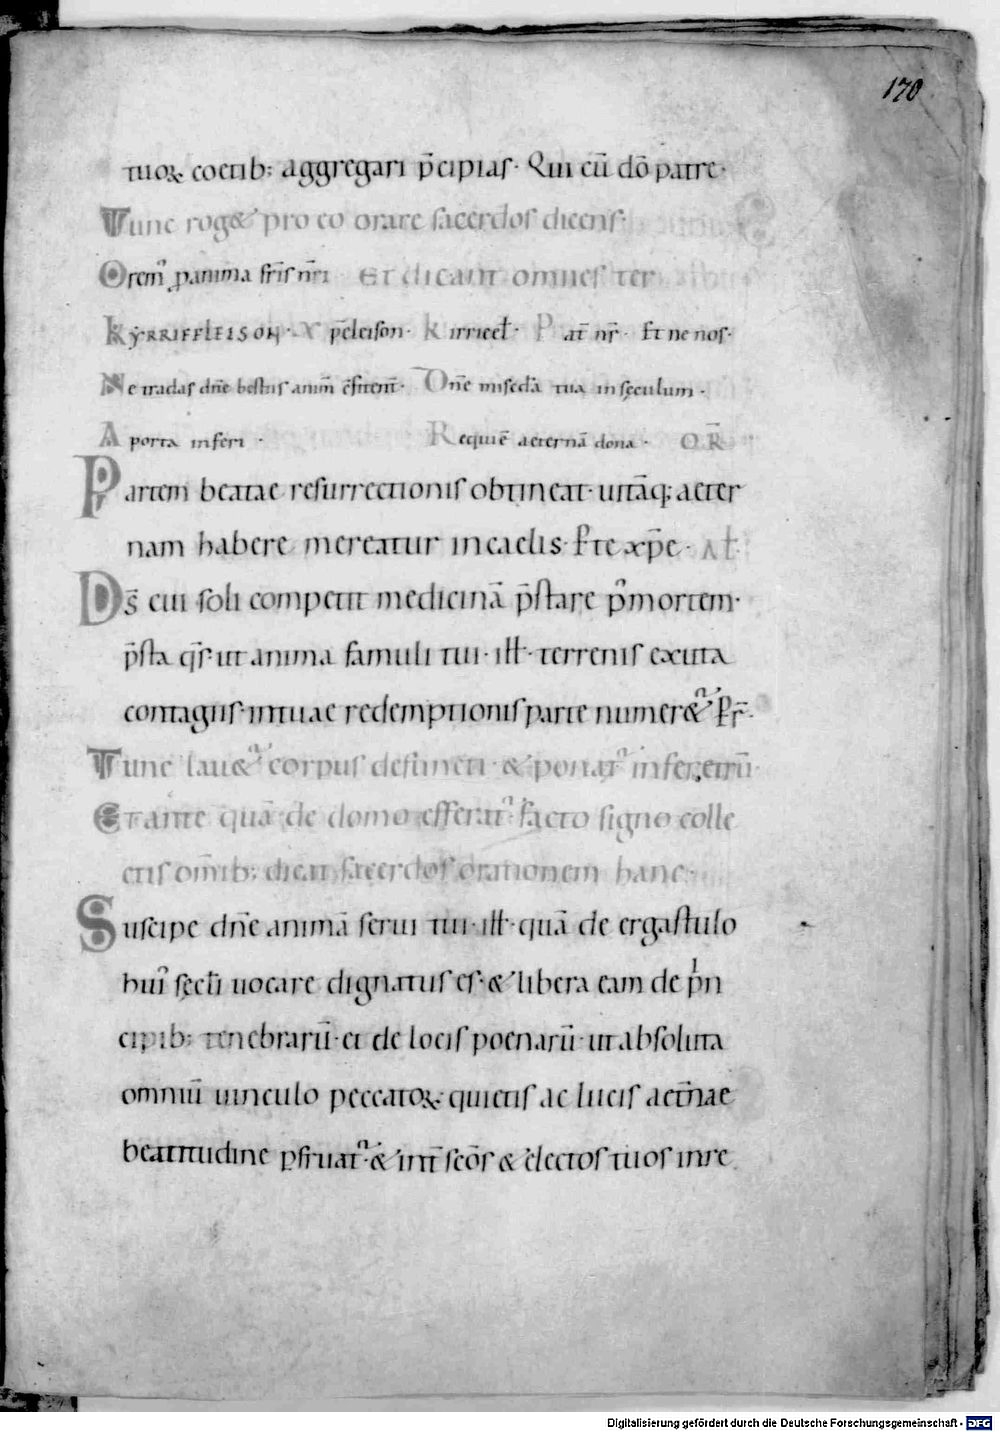 170
tuoꝝ coetib; aggregari p̄cipias· Qui cū dō patre·
Tunc roget᷒ pro eo orare sacerdos dicens·
Orem᷒ ꝓ anima fr̄is nr̄i Et dicant omnes ter
KYRRIELEISON· X p̄eleison· K irrieeł· P at̄ nr̄· Et ne nos·
Ne tradas dn̄e bestiis anim̄ c̄fitent̄· Dn̄e misc̄dia tua in sęculum·
A porta inferi · Requiē aeternā dona· OR̄
Partem beatae resurrectionis obtineat· uitāq; aeter
nam habere mereatur in caelis· P̄ te xp̄e· AŁ
Ds̄ cui soli competit medicinā p̄stare p᷒ mortem·
p̄sta q̄s· ut anima famuli tui· iłł· terrenis exuta
contagiis· in tuae redemptionis parte numeret᷒ Pr̄·
Tunc lauet᷒ corpus defuncti· & ponat᷒ in feretrū·
Et ante quā de domo efferat᷒ facto signo colle
ctis om̄ib; dicat sacerdos orationem hanc·
Suscipe dn̄e animā serui tui· iłł· quā de ergastulo
hui᷒ sęcłi uocare dignatus es· & libera eam de prin
cipib; tenebrarū· et de locis poenarū· ut absoluta
omniū uinculo peccatoꝝ· quietis ac lucis aet̄nae
beatitudine ꝑfruat᷒· & int̄ sc̄os & electos tuos in re
Digitalisierung gefördert durch die Deutsche Forschungsgemeinschaft - DFG